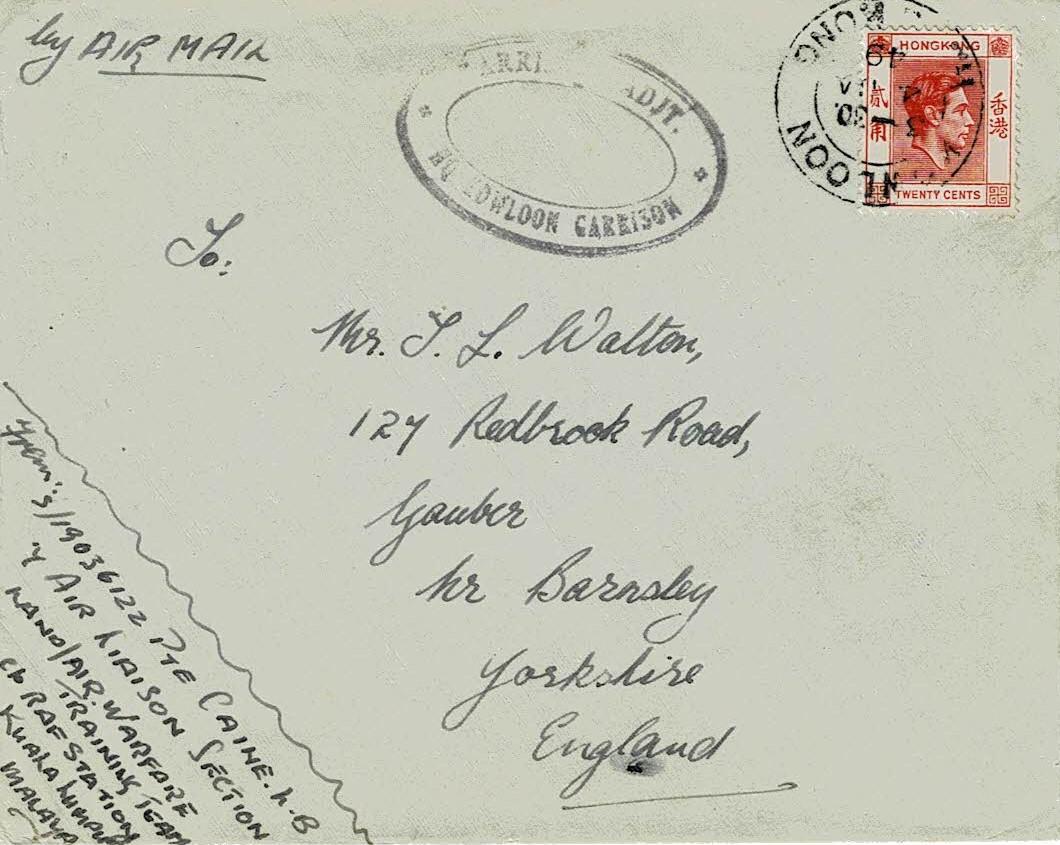 by AIR MAIL
ADJT.
HQ KOWLOON GARRISON
KOWLOON
HONG KONG
1-30
HONGKONG
貳角
香港
TWENTY CENTS
To:
Mr. T. L. Walton,
127 Redbrook Road,
Gauber
Nr Barnsley
Yorkshire
England
From:
S/19036122 PTE CAINE. L.B
AIR LIAISON SECTION
LAND/AIR WARFARE
TRAINING TEAM
RAF STATION
KUALA LUMPUR
MALAYA